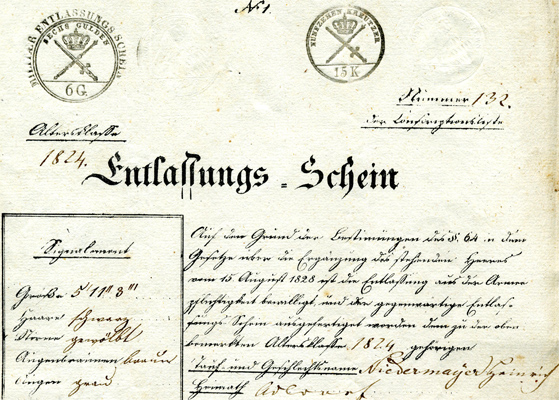 No 1.
MILITÄR ENTLASSUNGS SCHEIN
SECHS GULDEN
6 G.
FÜNFZEHEN KREUTZER
15 K
Nummer 132.
der Conscriptionsliste
Altersklasse
1824.
Entlassungs = Schein
Signalement
Größe 5' 11" 3'''
Haare schwarz
Stirne gewölbt
Augenbraunen braun
Augen grau
Auf den Grund der Bestimmungen des §. 64 a dem
Gesetze über die Ergänzung des stehenden Heeres
vom 15 August 1828 ist die Entlassung aus der Armee
pflichtigkeit bewilligt, und der gegenwärtige Entlas-
sungs Schein ausgefertiget worden dem zu der oben
bemerkten Altersklasse 1824 gehörigen
Tauf- und Geschlechtsname Niedermayer Heinrich
Heimath